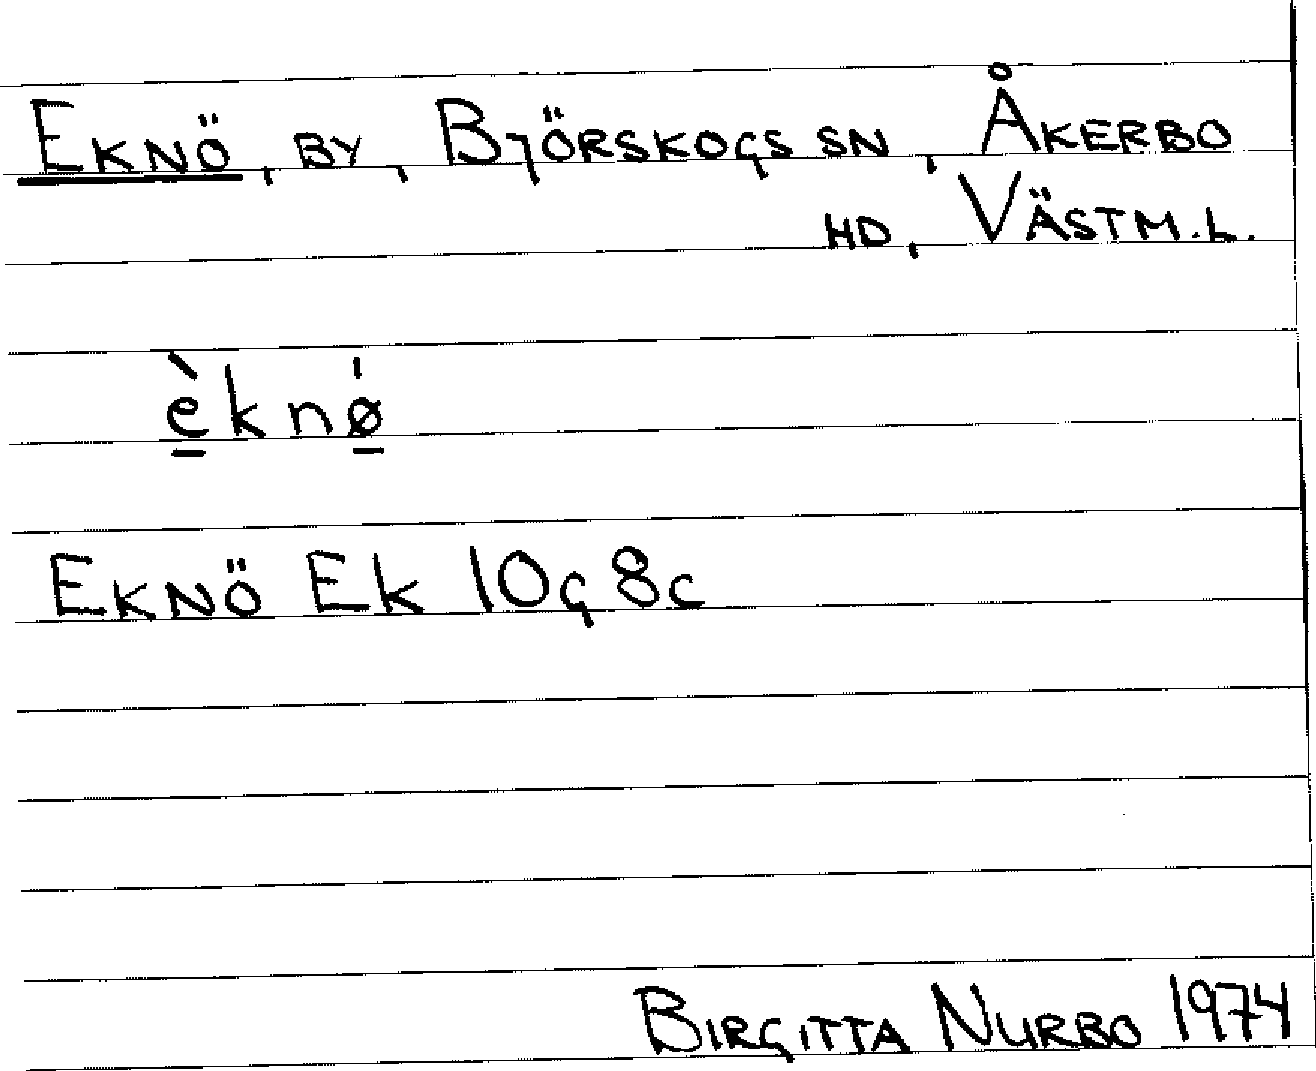 EKNÖ, BY, BJÖRSKOGS SN, ÅKERBO
HD, VÄSTM.L.
è̱knǿ̱
EKNÖ EK 10G 8C
BIRGITTA NURBO 1974